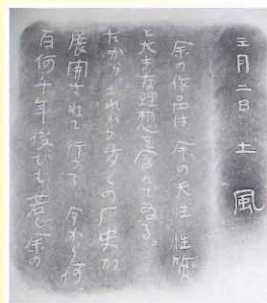 三月二日 土 風
余の作品は 余の天性 性質
と大きな理想を含んでゐる。
だから これから多くの歴史が
展開されて行って 今から何
百何千年後でも 若し余の